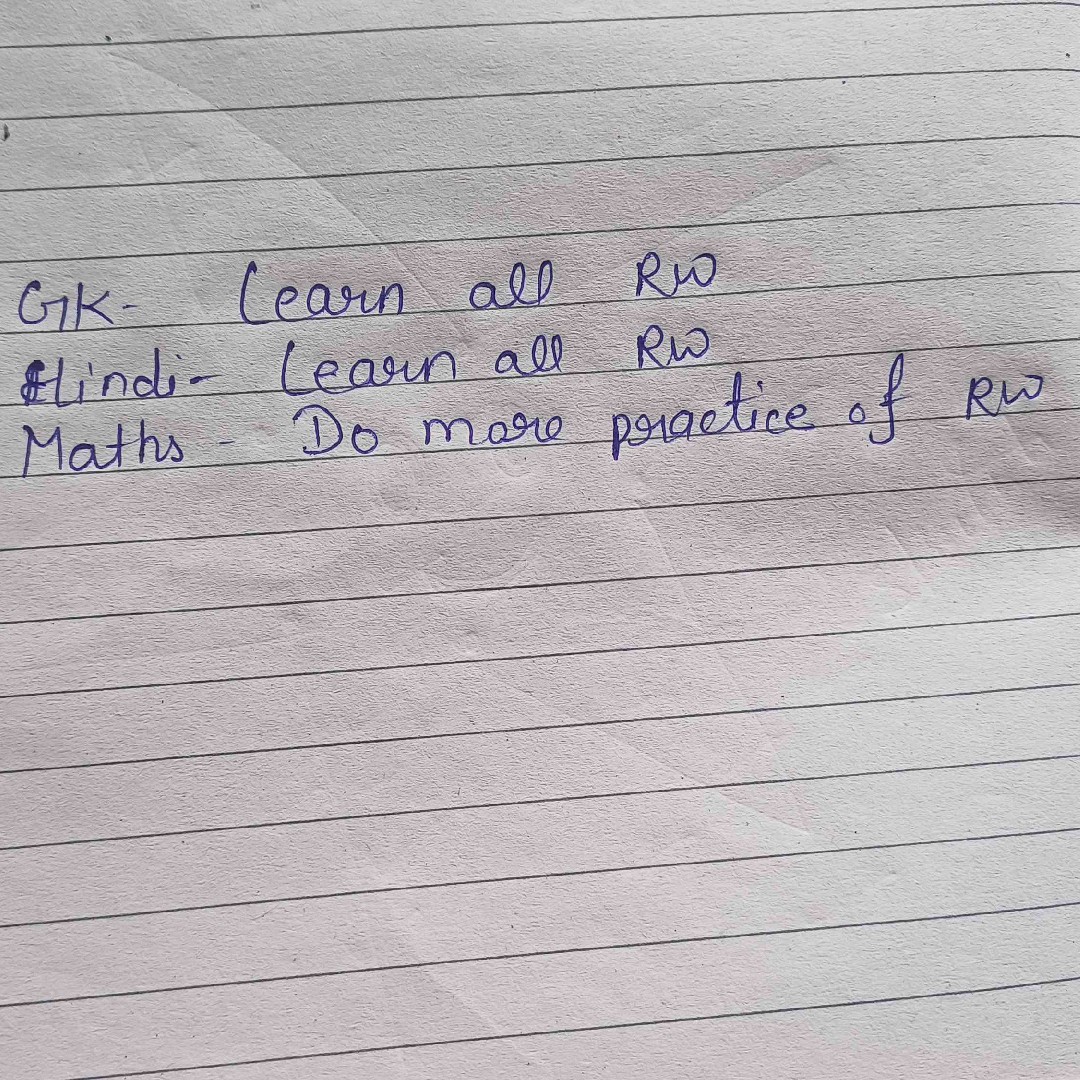 GK- Learn all RW
Hindi- Learn all RW
Maths - Do more practice of RW